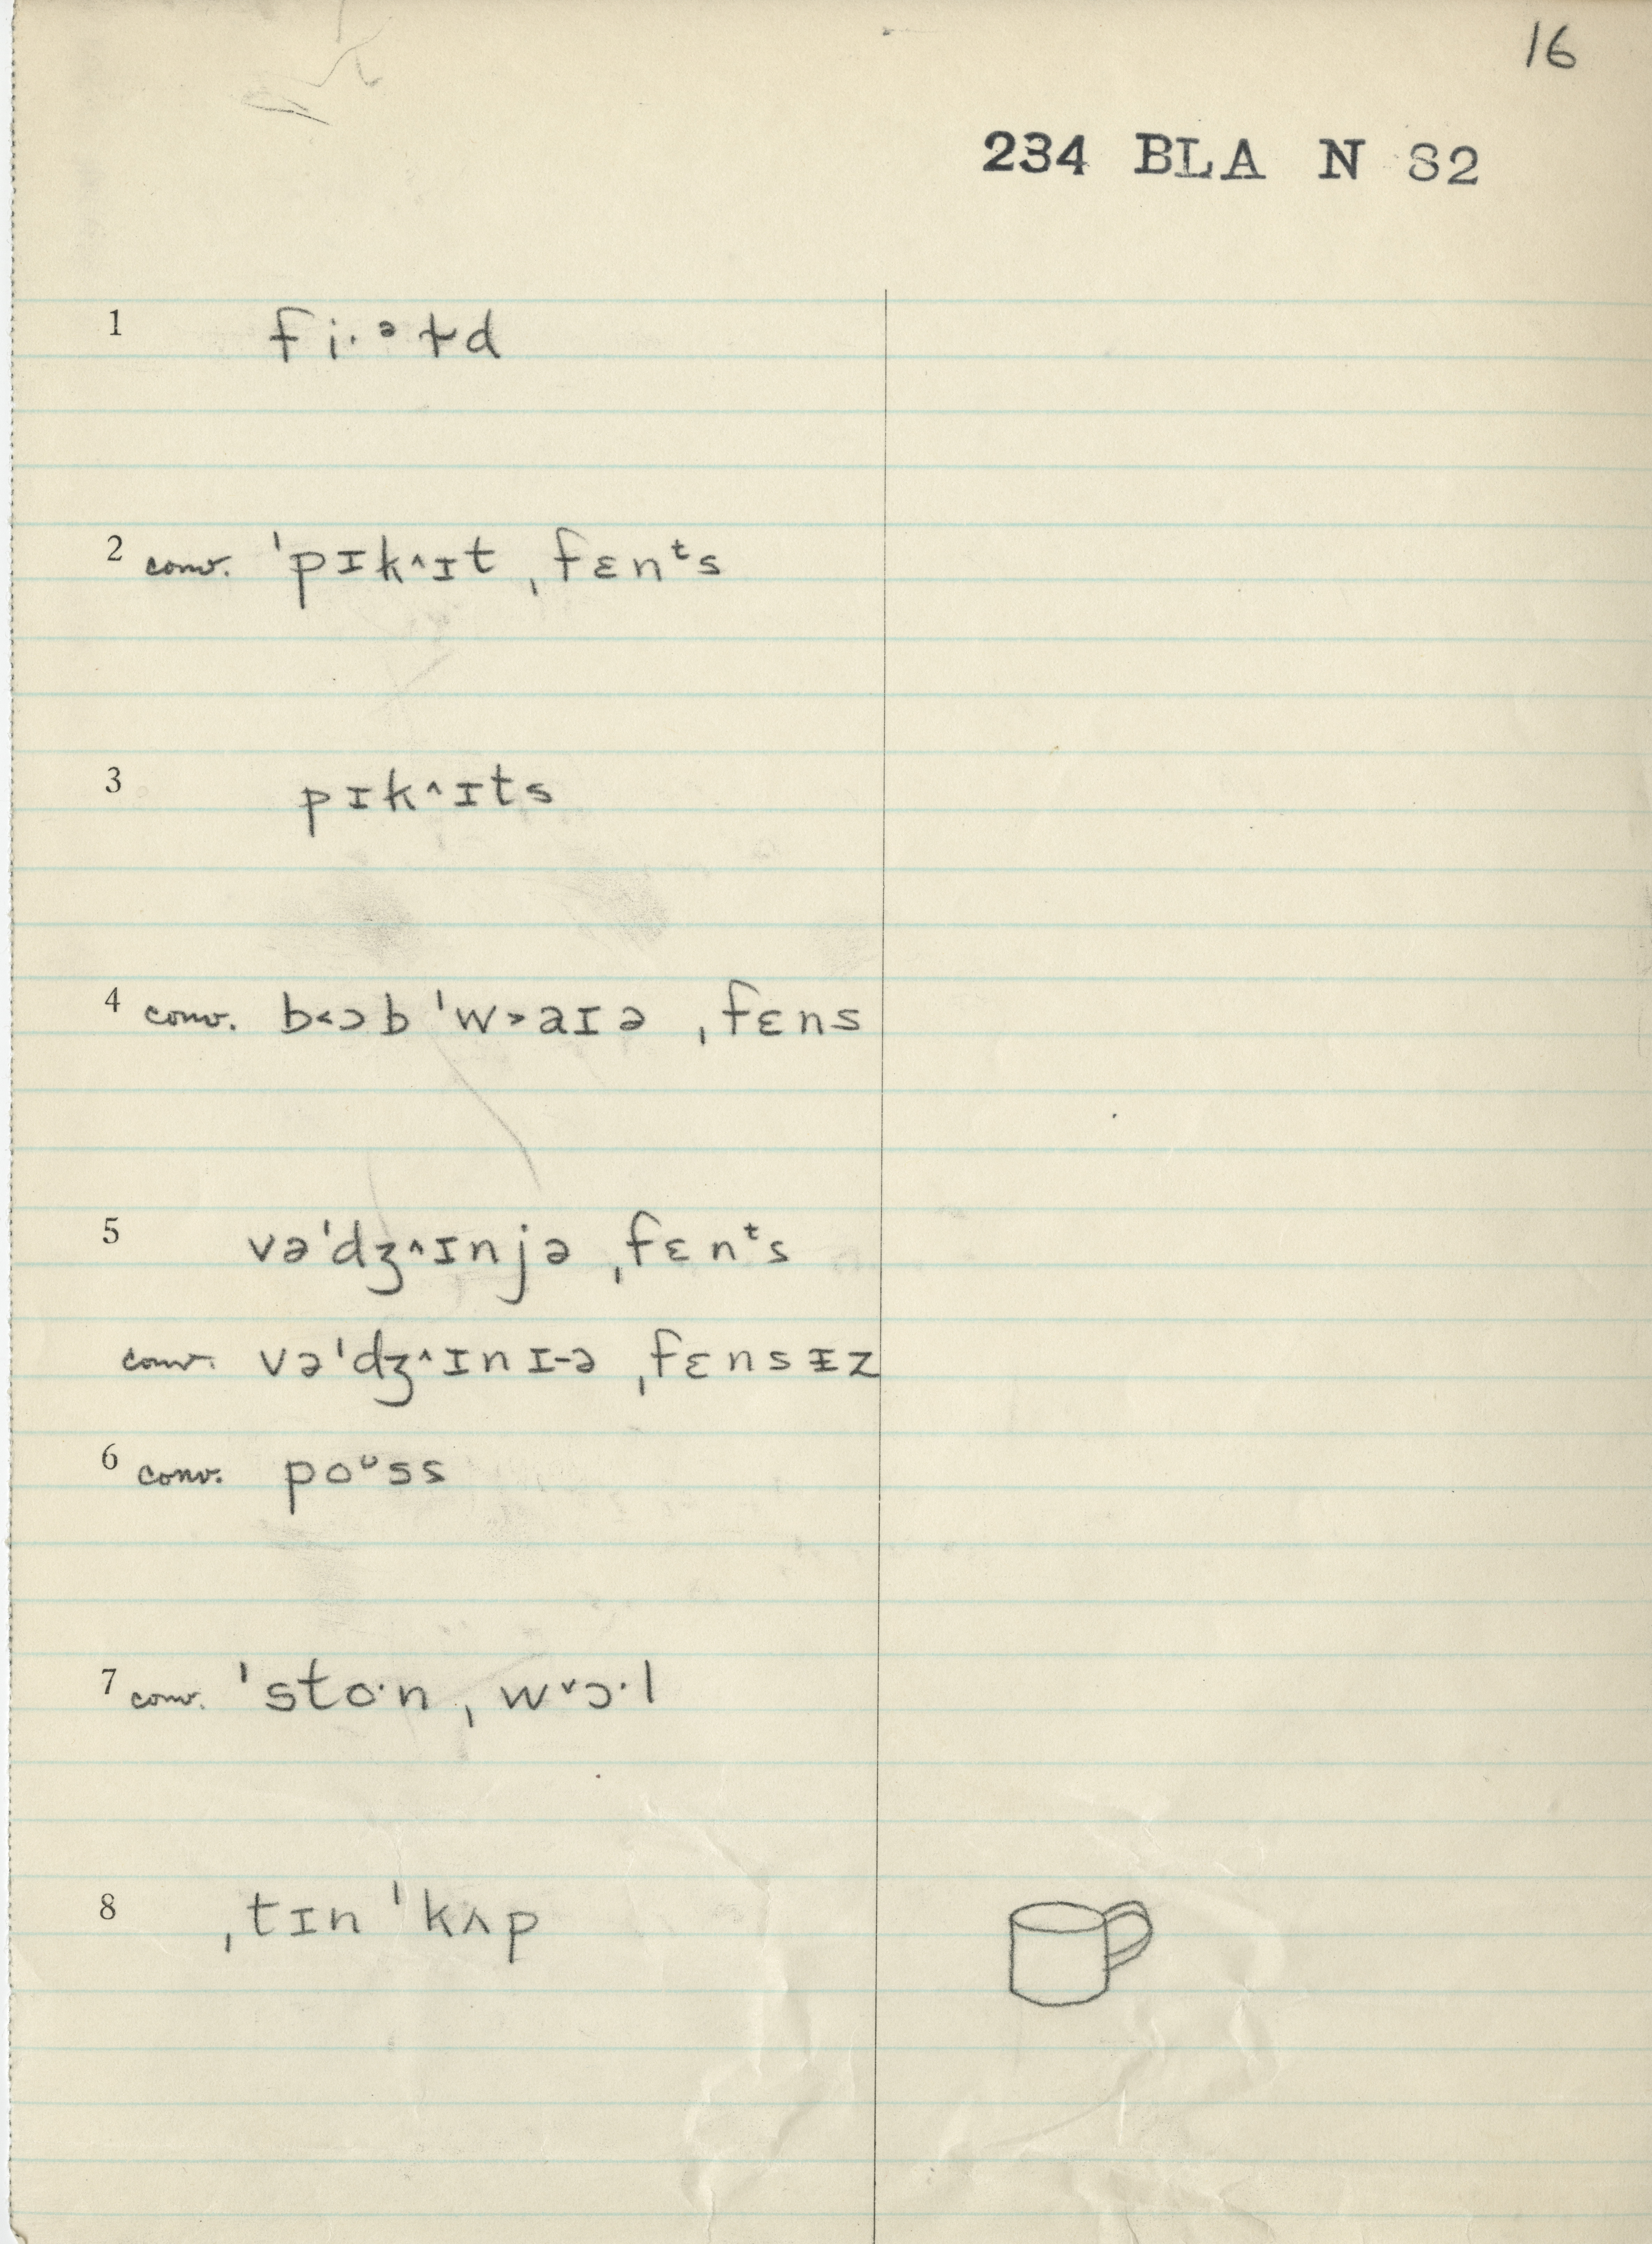 16
234 BLA N 82
1 fi·ᵊɫd
2 conv. ˈpɪk˄ɪt ˌfɛnᵗs
3 pɪk˄ɪts
4 conv. b˂ɔb ˈw˃aɪə ˌfɛns
5 vəˈdʒ˄ɪnjə ˌfɛnᵗs
conv. vəˈdʒ˄ɪnɪ-ə ˌfɛnsᵻz
6 conv. poᶷss
7 conv. ˈsto·n ˌw˅ɔ·l
8 ˌtɪn ˈkʌp